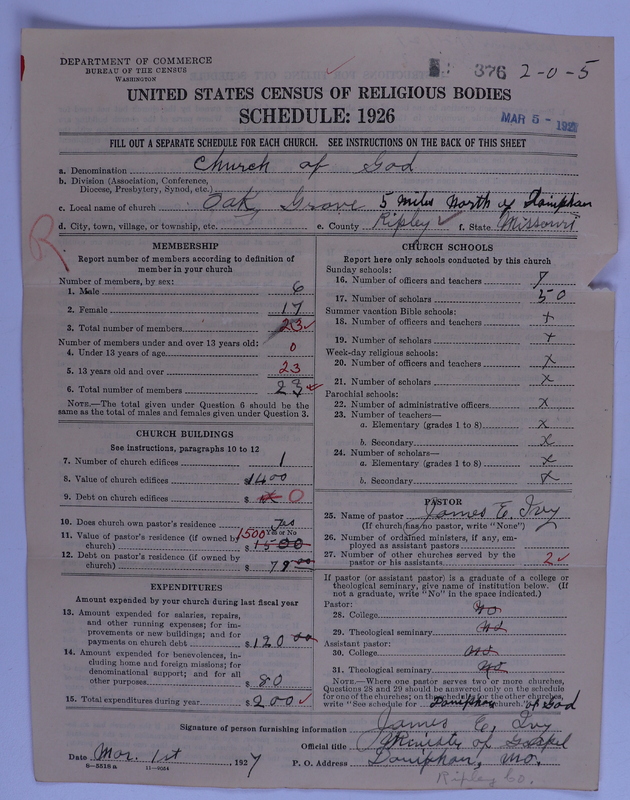 DEPARTMENT OF COMMERCE
BUREAU OF THE CENSUS
WASHINGTON
376 2-0-5
UNITED STATES CENSUS OF RELIGIOUS BODIES
SCHEDULE: 1926
MAR 5 - 192
FILL OUT A SEPARATE SCHEDULE FOR EACH CHURCH. SEE INSTRUCTIONS ON THE BACK OF THIS SHEET
a. Denomination Church of God
b. Division (Association, Conference,
Diocese, Presbytery, Synod, etc.)
c. Local name of church Oak Grove 5 miles North of Doniphan
d. City, town, village, or township, etc. e. County Ripley f. State Missouri
R
MEMBERSHIP
Report number of members according to definition of
member in your church
Number of members, by sex:
1. Male 6
2. Female 17
3. Total number of members 23
Number of members under and over 13 years old:
4. Under 13 years of age 0
5. 13 years old and over 23
6. Total number of members 23
NOTE.—The total given under Question 6 should be the
same as the total of males and females given under Question 3.
CHURCH BUILDINGS
See instructions, paragraphs 10 to 12
7. Number of church edifices 1
8. Value of church edifices $ 1400
9. Debt on church edifices $ 0
10. Does church own pastor's residence Yes
Yes or No
11. Value of pastor's residence (if owned by 1500
church) $ 1500
12. Debt on pastor's residence (if owned by
church) $
EXPENDITURES
Amount expended by your church during last fiscal year
13. Amount expended for salaries, repairs,
and other running expenses; for im-
provements or new buildings; and for
payments on church debt $ 120 00
14. Amount expended for benevolences, in-
cluding home and foreign missions; for
denominational support; and for all
other purposes $ 80
15. Total expenditures during year $ 200
CHURCH SCHOOLS
Report here only schools conducted by this church
Sunday schools:
16. Number of officers and teachers 7
17. Number of scholars 50
Summer vacation Bible schools:
18. Number of officers and teachers x
19. Number of scholars x
Week-day religious schools:
20. Number of officers and teachers x
21. Number of scholars x
Parochial schools:
22. Number of administrative officers x
23. Number of teachers—
a. Elementary (grades 1 to 8) x
b. Secondary x
24. Number of scholars—
a. Elementary (grades 1 to 8) x
b. Secondary x
PASTOR
25. Name of pastor James E. Ivy
(If church has no pastor, write "None")
26. Number of ordained ministers, if any, em-
ployed as assistant pastors
27. Number of other churches served by the
pastor or his assistants 2
If pastor (or assistant pastor) is a graduate of a college or
theological seminary, give name of institution below. (If
not a graduate, write "No" in the space indicated.)
Pastor:
28. College No
29. Theological seminary No
Assistant pastor:
30. College No
31. Theological seminary No
NOTE.—Where one pastor serves two or more churches,
Questions 28 and 29 should be answered only on the schedule
for one of the churches; on the schedule for the other churches,
write "See schedule for Doniphan church." of God
Signature of person furnishing information James E. Ivy
Official title Ministry of Gospel
Date Mar. 1st, 1927 P. O. Address Doniphan, Mo.
8-5518a 11-9054
Ripley Co.